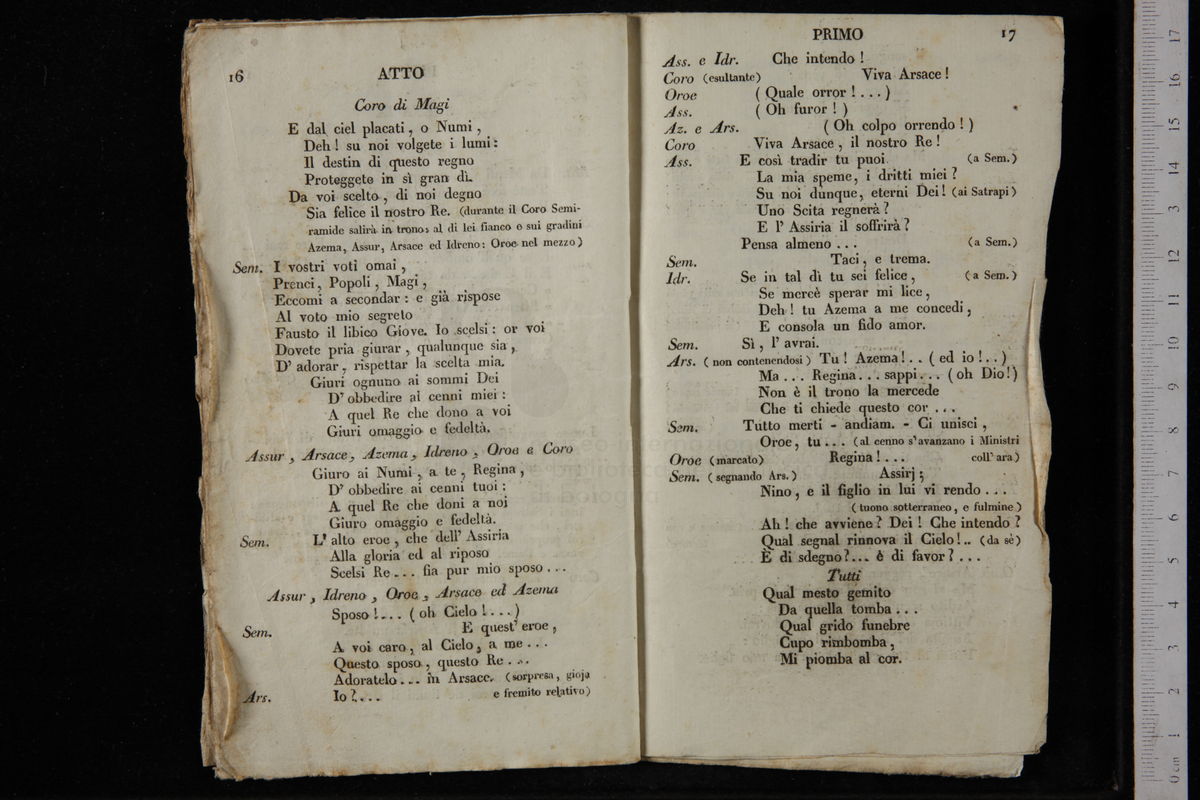 16
ATTO
Coro di Magi
E dal ciel placati, o Numi,
Deh! su noi volgete i lumi:
Il destin di questo regno
Proteggete in sì gran dì.
Da voi scelto, di noi degno
Sia felice il nostro Re. (durante il Coro Semi-
ramide salirà in trono: al di lei fianco e sui gradini
Azema, Assur, Arsace ed Idreno: Oroe nel mezzo)
Sem. I vostri voti omai,
Prenci, Popoli, Magi,
Eccomi a secondar: e già rispose
Al voto mio segreto
Fausto il libico Giove. Io scelsi: or voi
Dovete pria giurar, qualunque sia,
D' adorar, rispettar la scelta mia.
Giuri ognuno ai sommi Dei
D' obbedire ai cenni miei:
A quel Re che dono a voi
Giuri omaggio e fedeltà.
Assur, Arsace, Azema, Idreno, Oroe e Coro
Giuro ai Numi, a te, Regina,
D' obbedire ai cenni tuoi:
A quel Re che doni a noi
Giuro omaggio e fedeltà.
Sem. L' alto eroe, che dell' Assiria
Alla gloria ed al riposo
Scelsi Re... fia pur mio sposo...
Assur, Idreno, Oroe, Arsace ed Azema
Sposo!... (oh Cielo!...)
Sem. E quest' eroe,
A voi caro, al Cielo, a me...
Questo sposo, questo Re...
Adoratelo... in Arsace. (sorpresa, gioja
Ars. Io?.... e fremito relativo)
PRIMO
17
Ass. e Idr. Che intendo!
Coro (esultante) Viva Arsace!
Oroe (Quale orror!...)
Ass. (Oh furor!)
Az. e Ars. (Oh colpo orrendo!)
Coro Viva Arsace, il nostro Re!
Ass. E così tradir tu puoi (a Sem.)
La mia speme, i dritti miei?
Su noi dunque, eterni Dei! (ai Satrapi)
Uno Scita regnerà?
E l' Assiria il soffrirà?
Pensa almeno... (a Sem.)
Sem. Taci, e trema.
Idr. Se in tal dì tu sei felice, (a Sem.)
Se mercè sperar mi lice,
Deh! tu Azema a me concedi,
E consola un fido amor.
Sem. Sì, l' avrai.
Ars. (non contenendosi) Tu! Azema!.. (ed io!..)
Ma... Regina... sappi... (oh Dio!)
Non è il trono la mercede
Che ti chiede questo cor...
Sem. Tutto merti - andiam. - Ci unisci,
Oroe, tu... (al cenno s'avanzano i Ministri
Oroe (marcato) Regina!... coll' ara)
Sem. (segnando Ars.) Assirj;
Nino, e il figlio in lui vi rendo...
(tuono sotterraneo, e fulmine)
Ah! che avviene? Dei! Che intendo?
Qual segnal rinnova il Cielo!.. (da sè)
È di sdegno?... è di favor?...
Tutti
Qual mesto gemito
Da quella tomba...
Qual grido funebre
Cupo rimbomba,
Mi piomba al cor.
0 cm 1 2 3 4 5 6 7 8 9 10 11 12 13 14 15 16 17